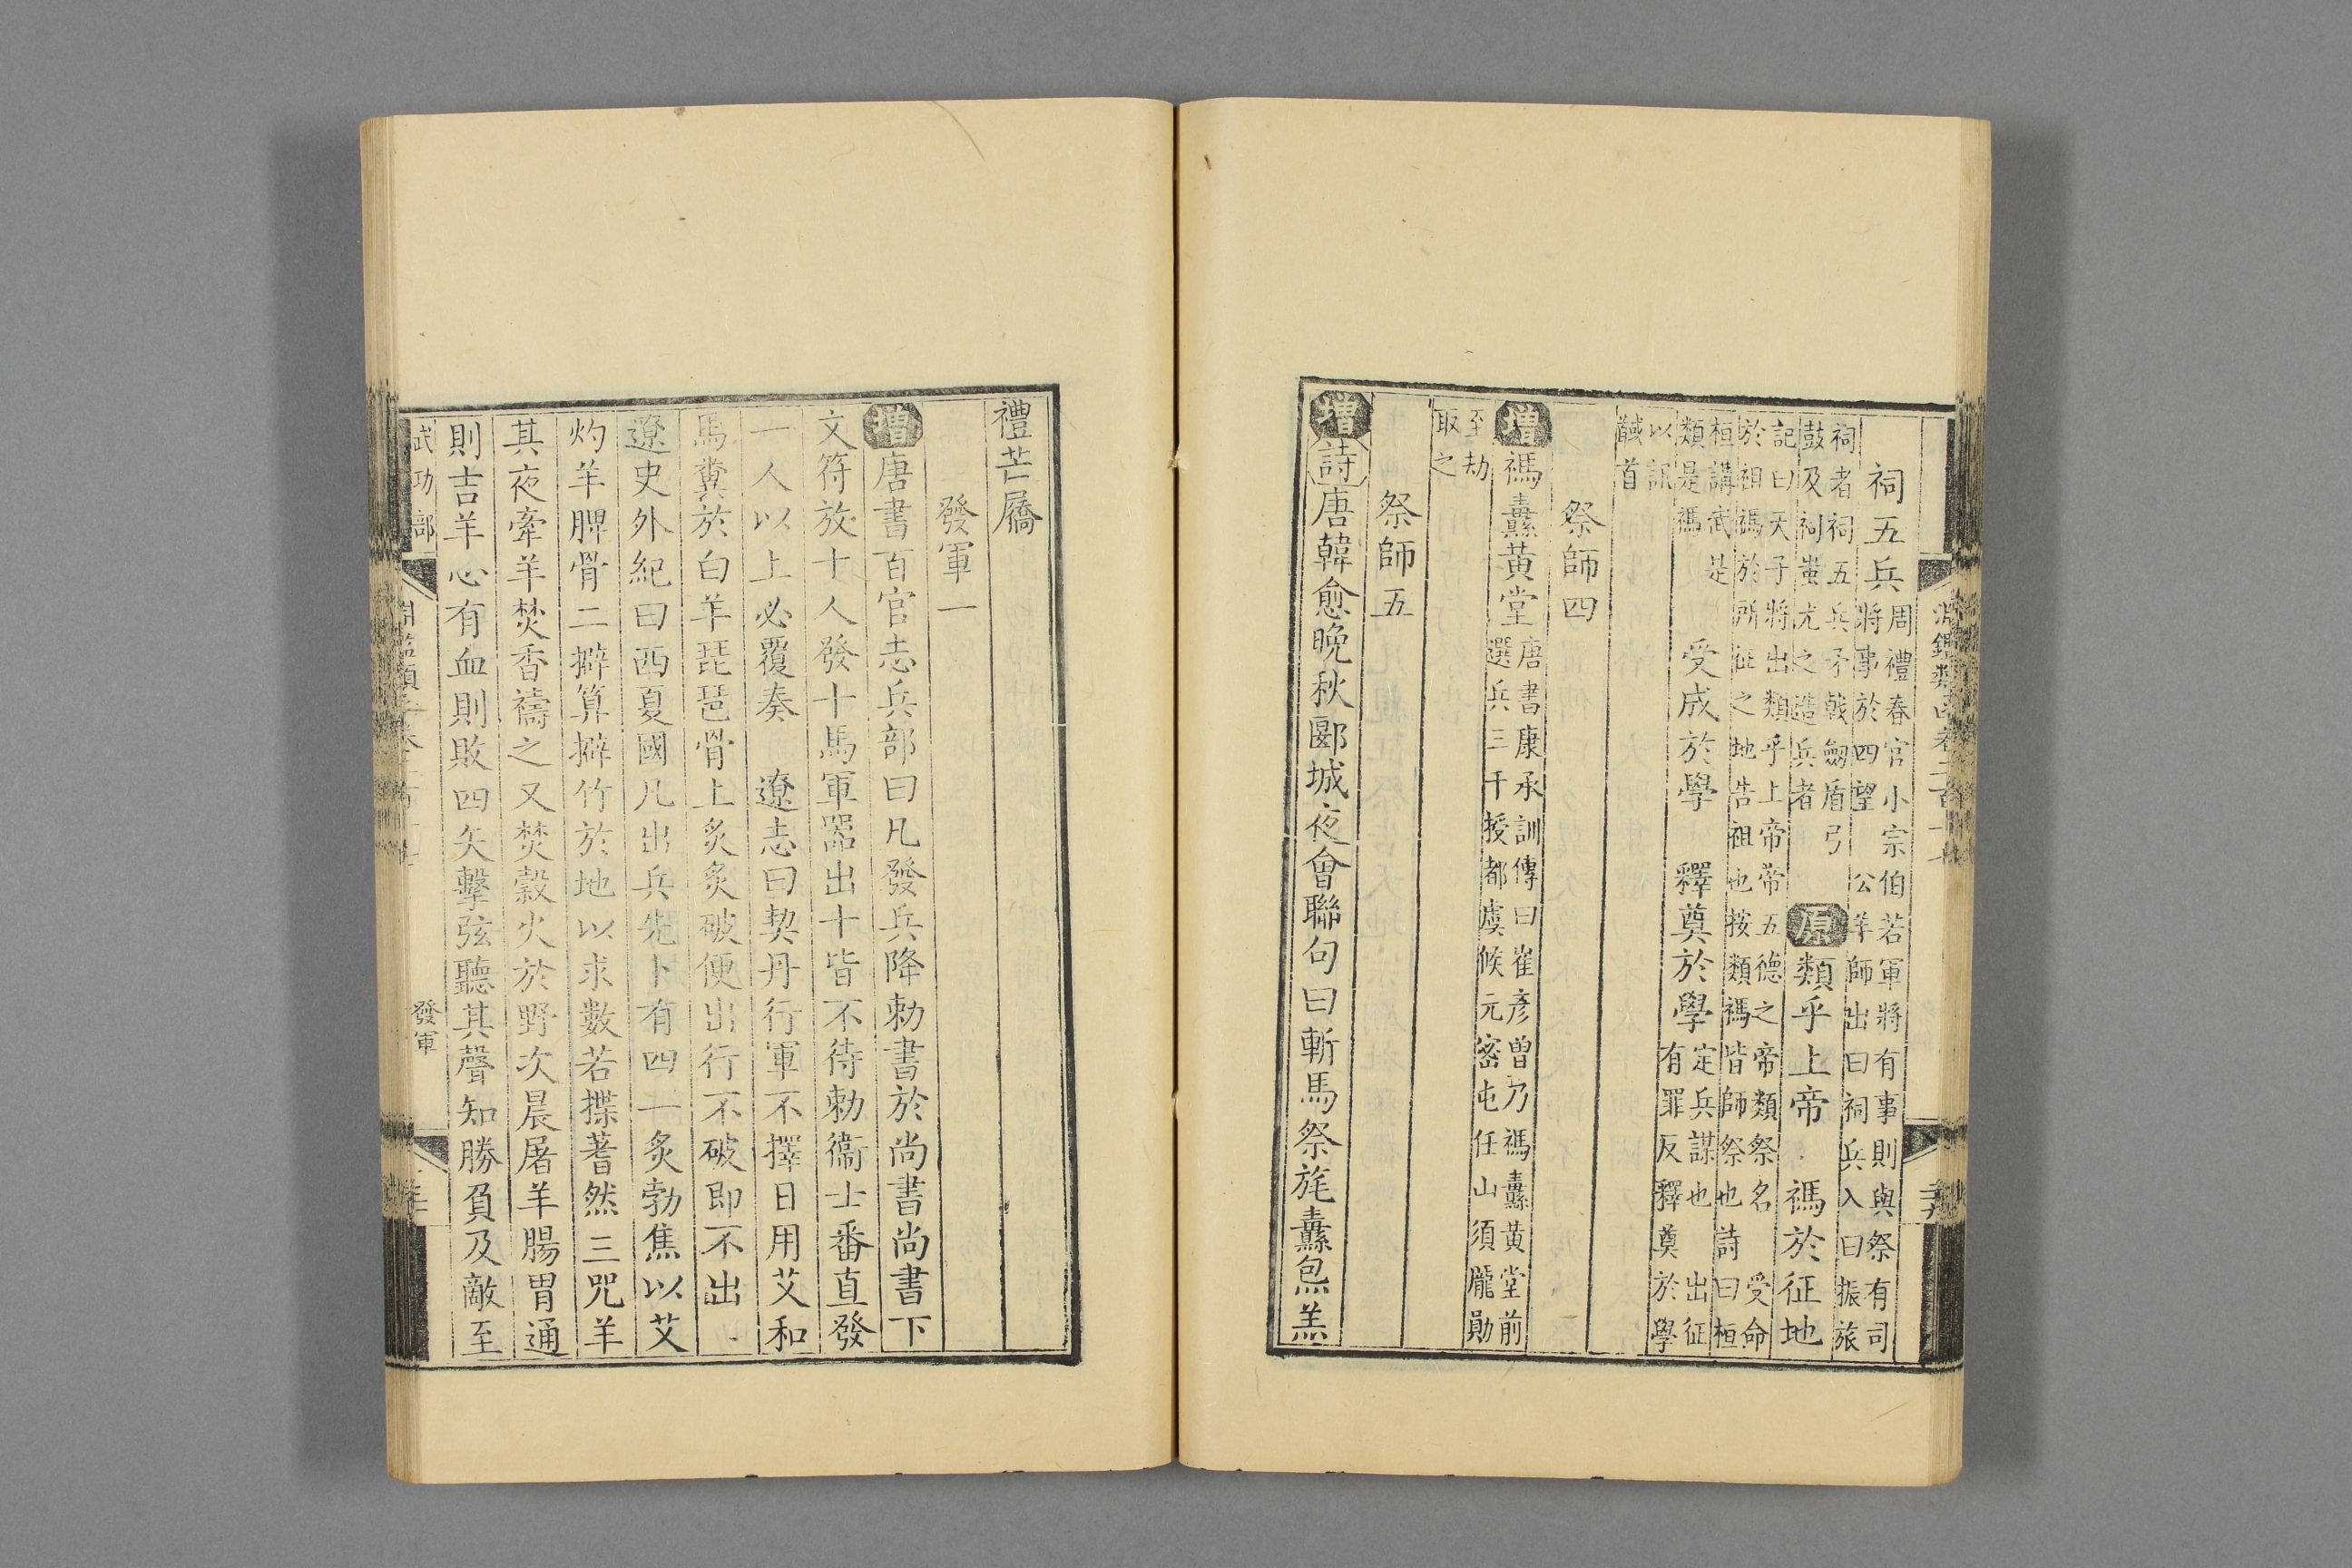 祠五兵周禮春官小宗伯若軍將有事則與祭有司將事於四望公羊師出曰祠兵入曰振旅
祠者祠五兵矛戟劔盾弓鼓及祠蚩尤之造兵者原類乎上帝禡於征地
記曰天子將出類乎上帝帝五德之帝類祭名受命於祖禡於所征之地告祖也按類禡皆師祭也詩曰桓
桓講武是類是禡受成於學釋奠於學定兵謀也出征有罪反釋奠於學
以訊馘首
祭師四
增禡纛黃堂唐書康承訓傳曰崔彥曾乃禡纛黃堂前選兵三千授都虞候元密屯任山須龐勛
至劫取之
祭師五
增詩唐韓愈晚秋郾城夜會聯句曰斬馬祭旄纛炰羔
禮芒屩
發軍一
增唐書百官志兵部曰凡發兵降勅書於尚書尚書下
文符放十人發十馬軍器出十皆不待勅衞士番直發
一人以上必覆奏遼志曰契丹行軍不擇日用艾和
馬糞於白羊琵琶骨上炙炙破便出行不破即不出
遼史外紀曰西夏國凡出兵先卜有四一炙勃焦以艾
灼羊脾骨二擗算擗竹於地以求數若揲蓍然三咒羊
其夜牽羊焚香禱之又焚穀火於野次晨屠羊腸胃通
則吉羊心有血則敗四矢擊弦聽其聲知勝負及敵至
武功部
發軍